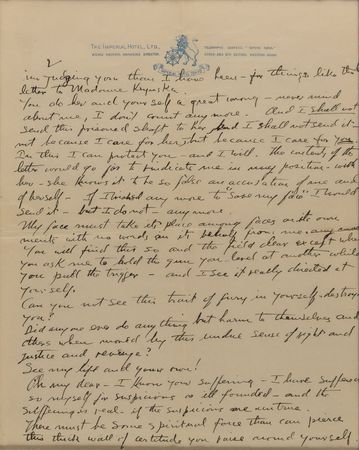 THE IMPERIAL HOTEL, LTD.
2
in judging you than I have been - for things like this
letter to Madame Krynska.
You do her and yourself a great wrong - never mind
about me, I don't count any more. And I shall not
send this poisoned shaft to her. And I shall not send it
not because I care for her, but because I care for you.
In this I can protect you - and I will. The contents of the
letter would go far to vindicate me in my position - with
her - she knows it to be so false an accusation of me and
of herself - If I wished any more to "save my face" I should
send it - but I do not - any more.
My face must take its place among faces on its own
merits with no words on its behalf from me, any more
You will find this so and the field clear except when
you ask me to hold the gun you level at another while
you pull the trigger - and I see it really directed at
yourself.
Can you not see this trait of fury in yourself - destroys
you?
Did anyone ever do anything but harm to themselves and
others when moved by this undue sense of right and
justice and revenge?
See my life and your own!
Oh my dear - I know your suffering - I have suffered
so myself for suspicions as ill founded - and the
suffering is real if the suspicions are untrue.
There must be some spiritual force that can pierce
this thick wall of attitude you raise around yourself